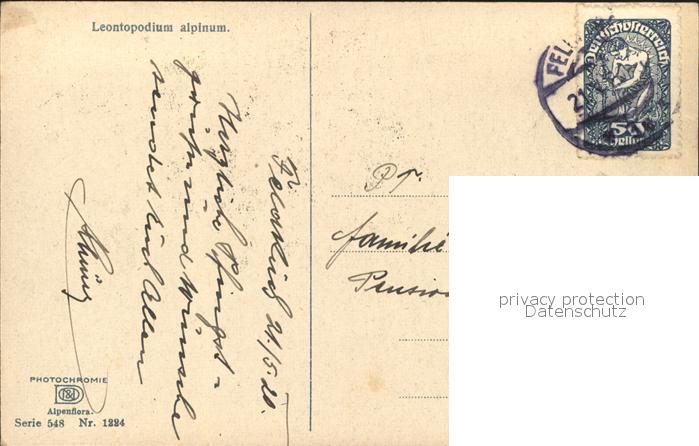 Leontopodium alpinum.
Feldkirch 21./5.20.
Herzliche Pfingst-
grüße und Wünsche
sendet Euch Allen
PHOTOCHROMIE
Alpenflora.
Serie 548 Nr. 1224
Deutschösterreich
50
Heller
FEL
21
Pr.
Familie
Pension
privacy protection
Datenschutz